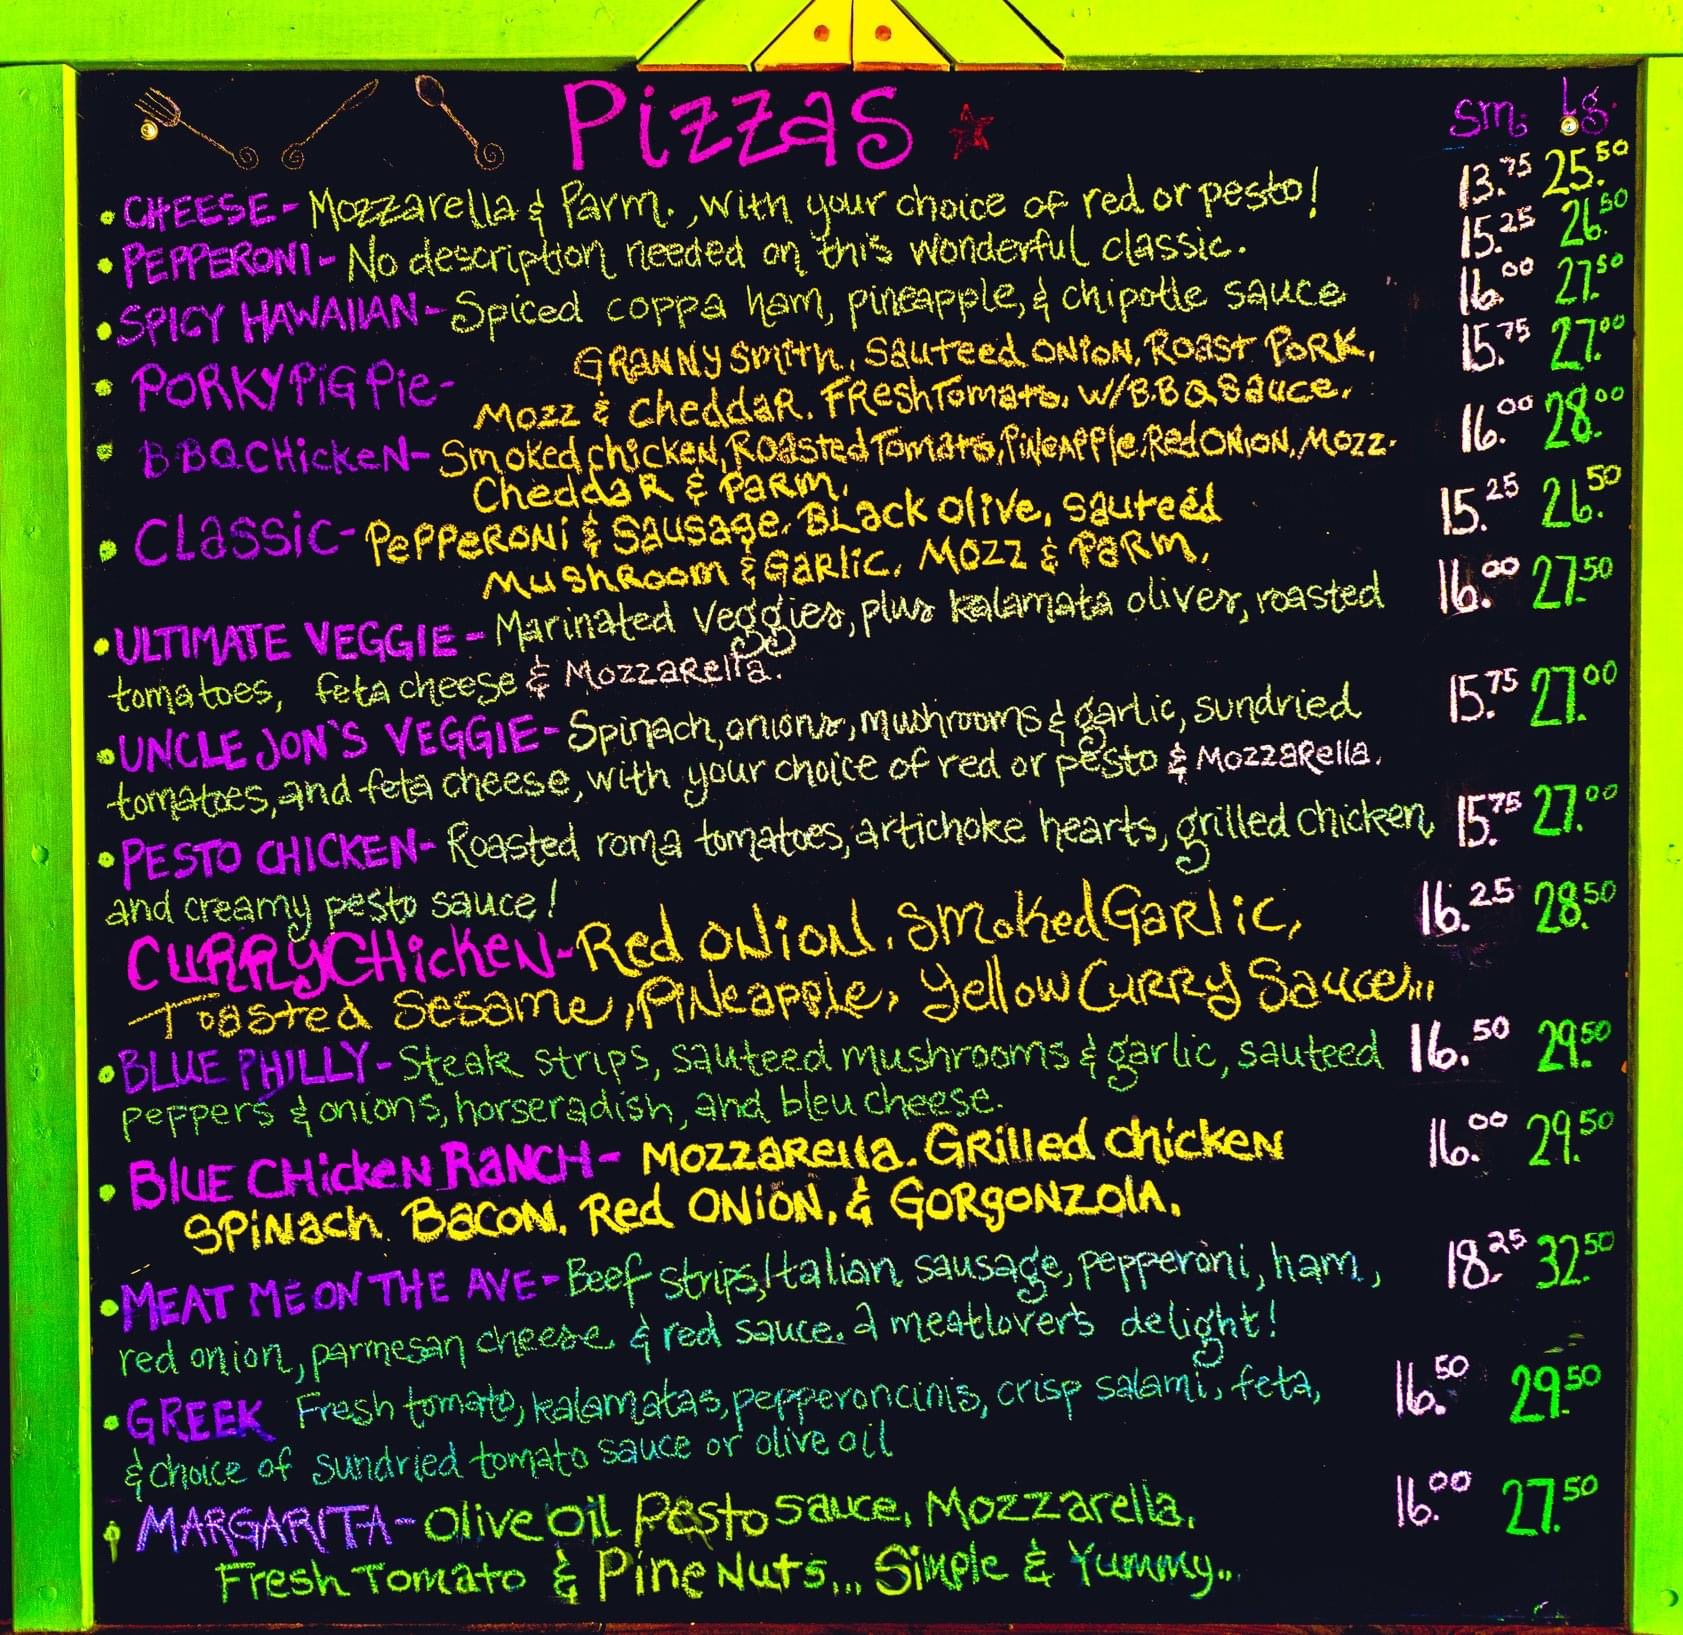 Pizzas
sm. lg.
• CHEESE - Mozzarella & Parm., with your choice of red or pesto! 13.75 25.50
• PEPPERONI - No description needed on this wonderful classic. 15.25 26.50
• SPICY HAWAIIAN - Spiced coppa ham, pineapple, & chipotle sauce 16.00 27.50
• PORKY PiG Pie - GRANNY Smith, Sauteed ONiON, ROAST PORK, 15.75 27.00
Mozz & CheddaR. FResh Tomato, w/B.B.Q Sauce.
• B·B·Q CHickeN - Smoked chickeN, ROasted Tomato, PiNeAPPle, Red ONiON, Mozz. 16.00 28.00
CheddaR & PaRm.
• CLassic - PePPeRONi & Sausage, BLack olive, Sauteed 15.25 26.50
MushRoom & GaRLic, Mozz & PaRm.
• ULTIMATE VEGGIE - Marinated veggies, plus kalamata olives, roasted 16.00 27.50
tomatoes, feta cheese & MozzaRella.
• UNCLE JON'S VEGGIE - Spinach, onions, mushrooms & garlic, sundried 15.75 27.00
tomatoes, and feta cheese, with your choice of red or pesto & MozzaRella.
• PESTO CHICKEN - Roasted roma tomatoes, artichoke hearts, grilled chicken, 15.75 27.00
and creamy pesto sauce!
CuRRy CHickeN - Red ONioN, SmokedGaRlic, 16.25 28.50
Toasted Sesame, PiNeapple, Yellow CuRRy Sauce...
• BLUE PHILLY - Steak strips, sauteed mushrooms & garlic, sauteed 16.50 29.50
peppers & onions, horseradish, and bleu cheese.
• BlUE CHickeN RaNCH - MozzaRella. GRilled chickeN 16.00 29.50
SPiNach, BacoN, Red ONiON, & GORgONzola.
• MEAT ME ON THE AVE - Beef strips, Italian sausage, pepperoni, ham, 18.25 32.50
red onion, parmesan cheese & red sauce. a meatlover's delight!
• GREEK Fresh tomato, kalamatas, pepperoncinis, crisp salami, feta, 16.50 29.50
& choice of sundried tomato sauce or olive oil
• MARGARITA - Olive Oil Pesto sauce, Mozzarella, 16.00 27.50
Fresh Tomato & Pine Nuts... Simple & Yummy..